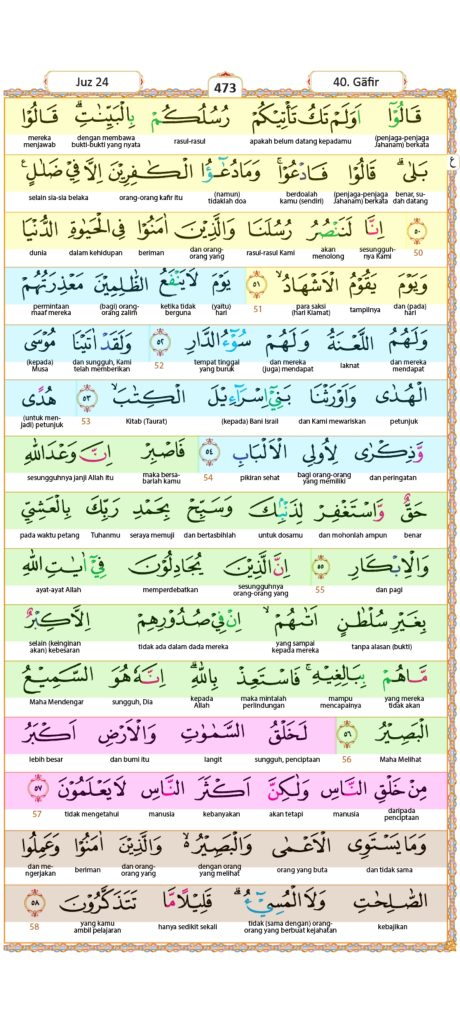 Juz 24
473
40. Gāfir
قَالُوْٓا اَوَلَمْ تَكُ تَأْتِيْكُمْ رُسُلُكُمْ بِالْبَيِّنٰتِۗ قَالُوْا
(penjaga-penjaga Jahanam) berkata apakah belum datang kepadamu rasul-rasul dengan membawa bukti-bukti yang nyata mereka menjawab
ع
بَلٰىۗ قَالُوْا فَادْعُوْاۚ وَمَا دُعٰۤؤُا الْكٰفِرِيْنَ اِلَّا فِيْ ضَلٰلٍ
benar, sudah datang (penjaga-penjaga Jahanam) berkata berdoalah kamu (sendiri) (namun) tidaklah doa orang-orang kafir itu selain sia-sia belaka
٥٠ اِنَّا لَنَنْصُرُ رُسُلَنَا وَالَّذِيْنَ اٰمَنُوْا فِى الْحَيٰوةِ الدُّنْيَا
50 sesungguhnya Kami akan menolong rasul-rasul Kami dan orang-orang yang beriman dalam kehidupan dunia
وَيَوْمَ يَقُوْمُ الْاَشْهَادُۙ ٥١ يَوْمَ لَا يَنْفَعُ الظّٰلِمِيْنَ مَعْذِرَتُهُمْ
dan (pada) hari tampilnya para saksi (hari Kiamat) 51 (yaitu) hari ketika tidak berguna (bagi) orang-orang zalim permintaan maaf mereka
وَلَهُمُ اللَّعْنَةُ وَلَهُمْ سُوْۤءُ الدَّارِ ٥٢ وَلَقَدْ اٰتَيْنَا مُوْسَى
dan mereka mendapat laknat dan mereka (juga) mendapat tempat tinggal yang buruk 52 dan sungguh, Kami telah memberikan (kepada) Musa
الْهُدٰى وَاَوْرَثْنَا بَنِيْٓ اِسْرَاۤءِيْلَ الْكِتٰبَۙ ٥٣ هُدًى
petunjuk dan Kami mewariskan (kepada) Bani Israil Kitab (Taurat) 53 (untuk menjadi) petunjuk
وَّذِكْرٰى لِاُولِى الْاَلْبَابِ ٥٤ فَاصْبِرْ اِنَّ وَعْدَ اللّٰهِ
dan peringatan bagi orang-orang yang memiliki pikiran sehat 54 maka bersabarlah kamu sesungguhnya janji Allah itu
حَقٌّ وَّاسْتَغْفِرْ لِذَنْۢبِكَ وَسَبِّحْ بِحَمْدِ رَبِّكَ بِالْعَشِيِّ
benar dan mohonlah ampun untuk dosamu dan bertasbihlah seraya memuji Tuhanmu pada waktu petang
وَالْاِبْكَارِ ٥٥ اِنَّ الَّذِيْنَ يُجَادِلُوْنَ فِيْٓ اٰيٰتِ اللّٰهِ
dan pagi 55 sesungguhnya orang-orang yang memperdebatkan ayat-ayat Allah
بِغَيْرِ سُلْطٰنٍ اَتٰىهُمْۙ اِنْ فِيْ صُدُوْرِهِمْ اِلَّا كِبْرٌ
tanpa alasan (bukti) yang sampai kepada mereka tidak ada dalam dada mereka selain (keinginan akan) kebesaran
مَّا هُمْ بِبَالِغِيْهِۚ فَاسْتَعِذْ بِاللّٰهِۗ اِنَّهٗ هُوَ السَّمِيْعُ
yang mereka tidak akan mampu mencapainya maka mintalah perlindungan kepada Allah sungguh, Dia Maha Mendengar
الْبَصِيْرُ ٥٦ لَخَلْقُ السَّمٰوٰتِ وَالْاَرْضِ اَكْبَرُ
Maha Melihat 56 sungguh, penciptaan langit dan bumi itu lebih besar
مِنْ خَلْقِ النَّاسِ وَلٰكِنَّ اَكْثَرَ النَّاسِ لَا يَعْلَمُوْنَ ٥٧
daripada penciptaan manusia akan tetapi kebanyakan manusia tidak mengetahui 57
وَمَا يَسْتَوِى الْاَعْمٰى وَالْبَصِيْرُ ەۙ وَالَّذِيْنَ اٰمَنُوْا وَعَمِلُوا
dan tidak sama orang yang buta dengan orang yang melihat dan orang-orang yang beriman dan mengerjakan
الصّٰلِحٰتِ وَلَا الْمُسِيْۤءُۗ قَلِيْلًا مَّا تَتَذَكَّرُوْنَ ٥٨
kebajikan tidak (sama dengan) orang-orang yang berbuat kejahatan hanya sedikit sekali yang kamu ambil pelajaran 58